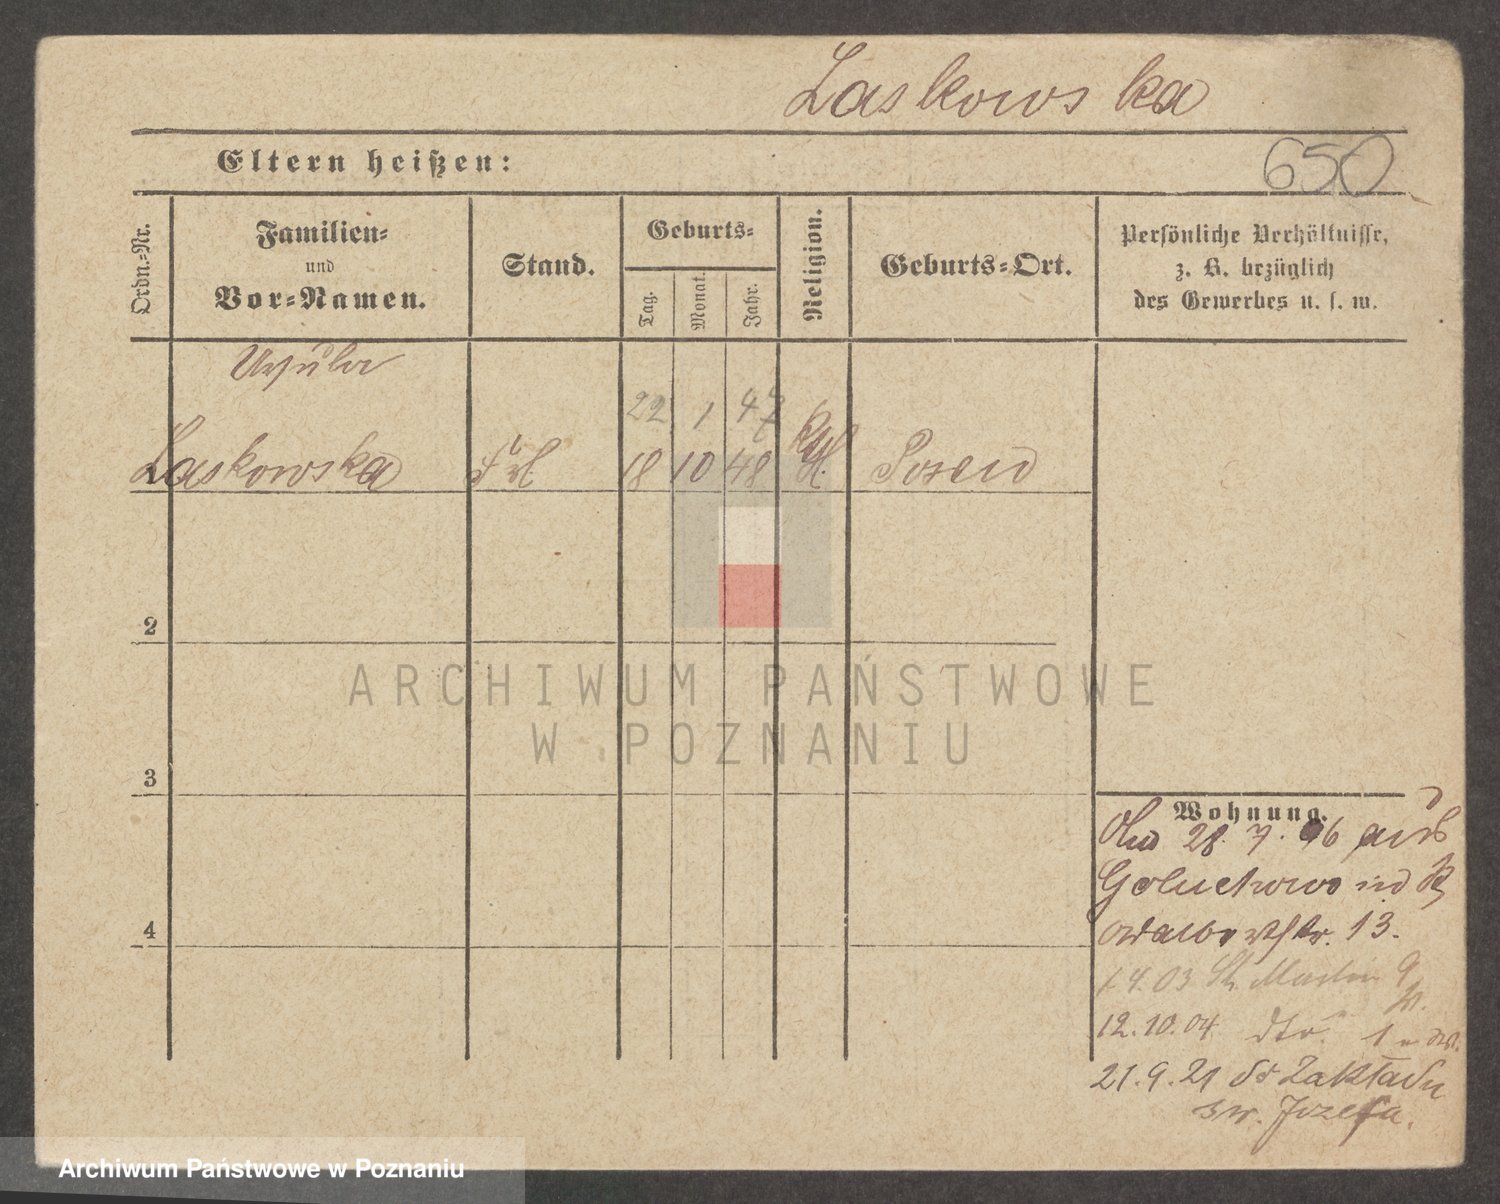 Laskowska
Eltern heißen:
650
Ordn.-Nr.
Familien-
und
Vor-Namen.
Stand.
Geburts-
Tag.
Monat.
Jahr.
Religion.
Geburts-Ort.
Persönliche Verhältnisse,
z. B. bezüglich
des Gewerbes u. s. w.
Ursula
22 1 47
Laskowska Frl. 18 10 48 Posen
2
3
4
ARCHIWUM PAŃSTWOWE
W POZNANIU
Wohnung.
28. 7. 96 aus
Goluchowo in
13.
1.4.03 St. Martin 9
12.10.04 dto. 1
21.9.21 do Zakładu
św. Józefa.
Archiwum Państwowe w Poznaniu